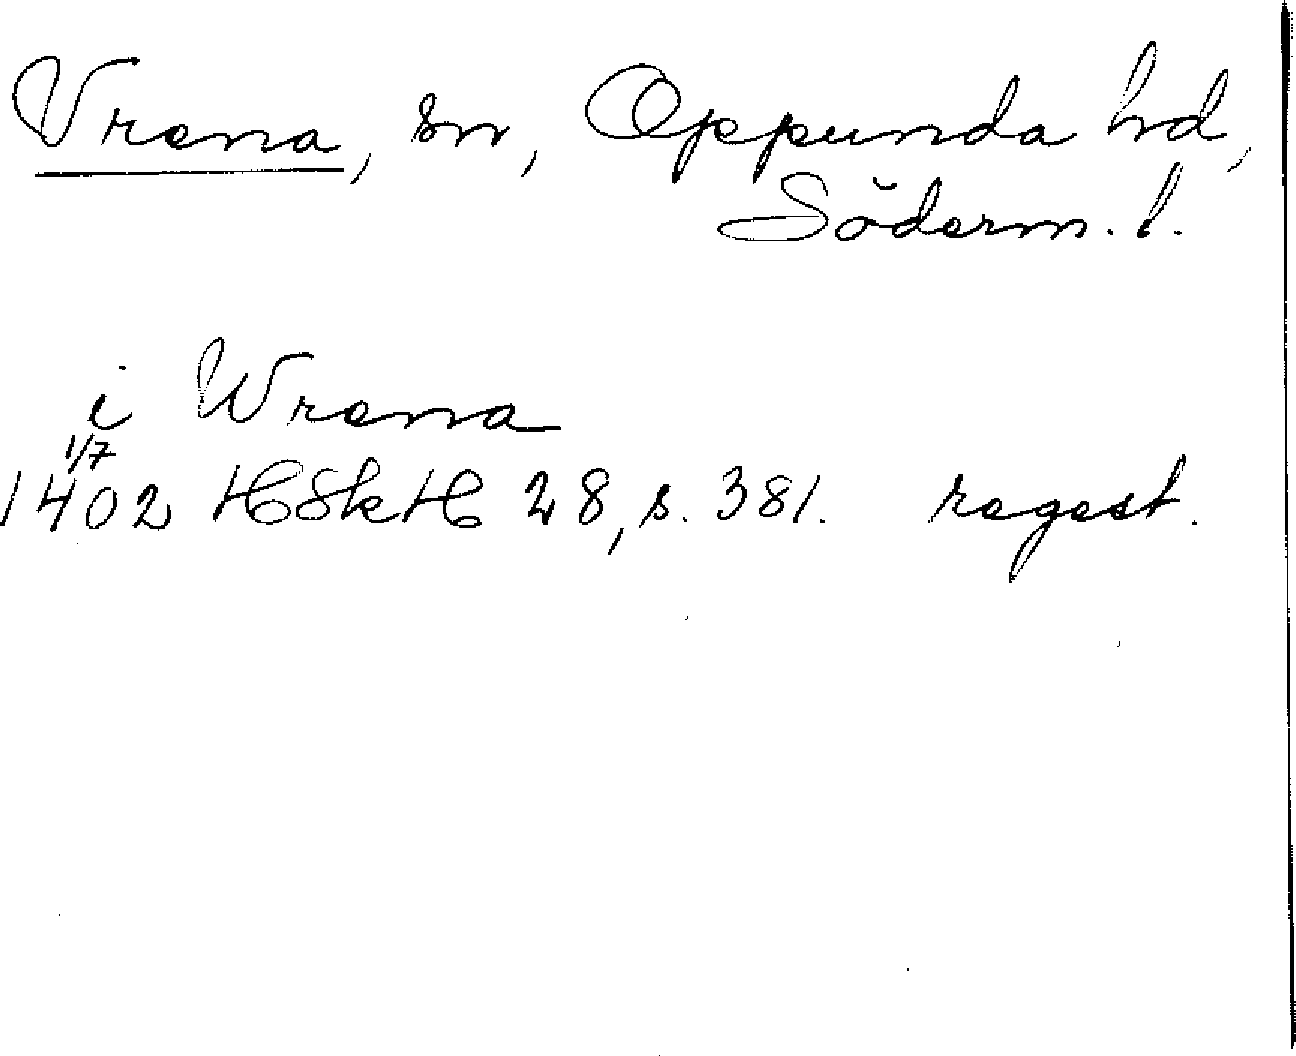 Vrena, sn, Oppunda hd,
Söderm. l.
i Wrena
1/7
1402 HSkH 28, s. 381. regest.